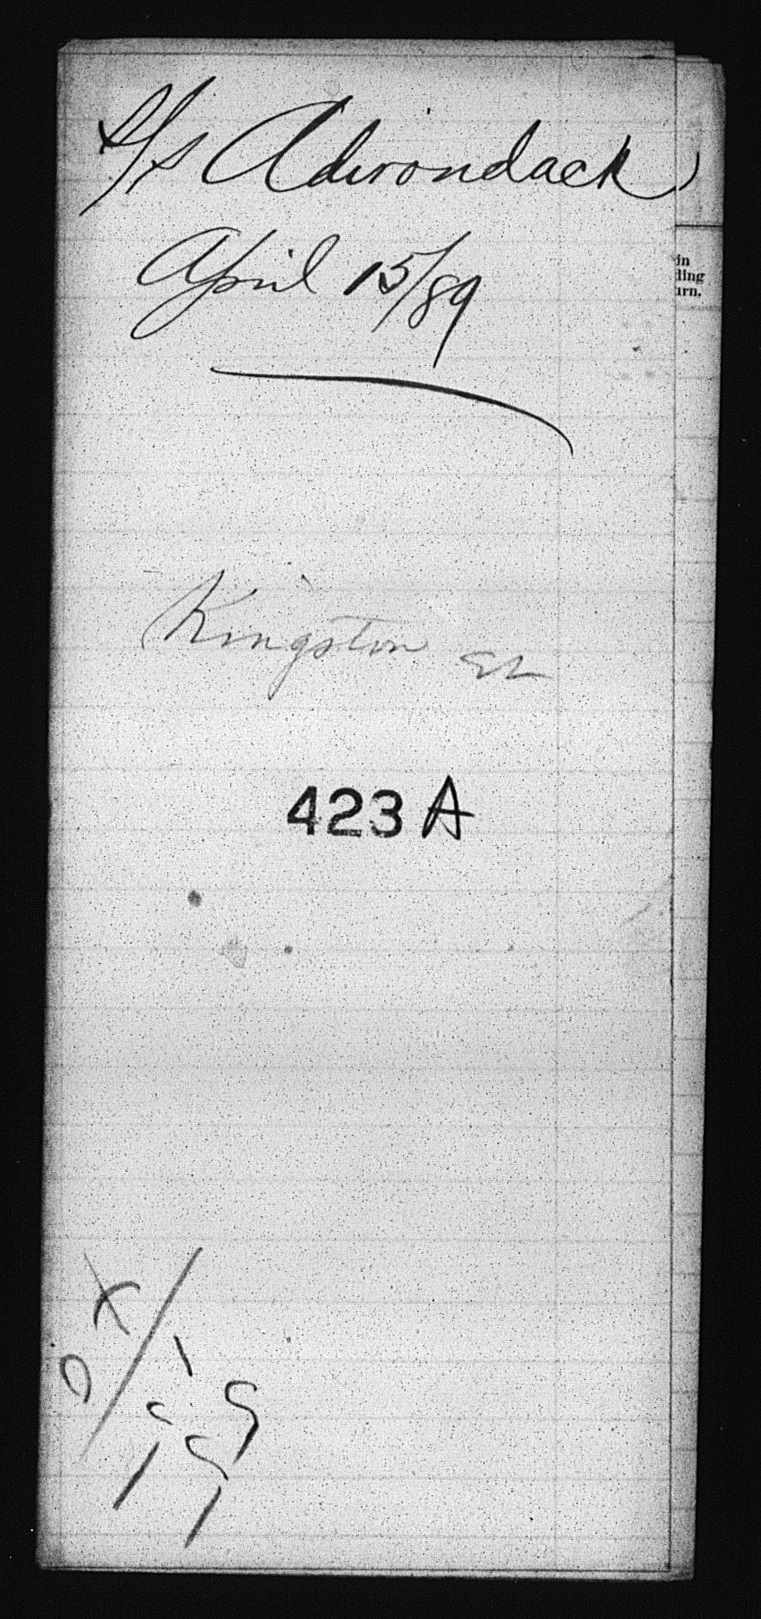 S/s Adirondack
April 15/89
in
ding
urn.
Kingston
423 A